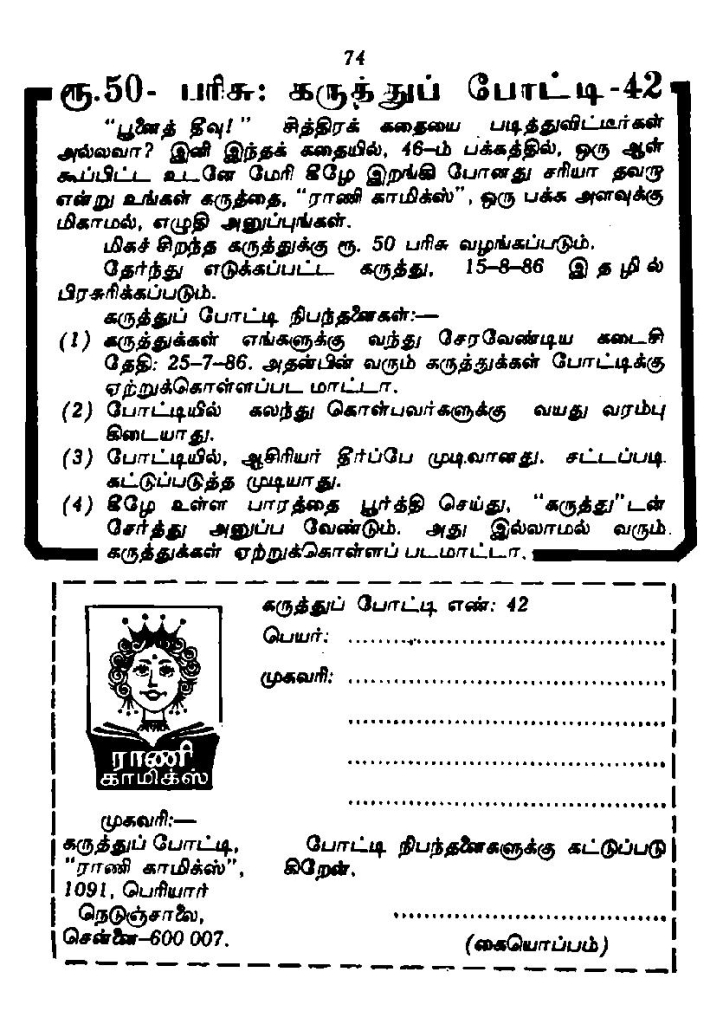 74
ரூ.50- பரிசு: கருத்துப் போட்டி-42
"பூனைத் தீவு!" சித்திரக் கதையை படித்துவிட்டீர்கள்
அல்லவா? இனி இந்தக் கதையில், 46-ம் பக்கத்தில், ஒரு ஆள்
கூப்பிட்ட உடனே மேரி கீழே இறங்கி போனது சரியா தவறா
என்று உங்கள் கருத்தை, "ராணி காமிக்ஸ்", ஒரு பக்க அளவுக்கு
மிகாமல், எழுதி அனுப்புங்கள்.
மிகச் சிறந்த கருத்துக்கு ரூ. 50 பரிசு வழங்கப்படும்.
தேர்ந்து எடுக்கப்பட்ட கருத்து, 15-8-86 இதழில்
பிரசுரிக்கப்படும்.
கருத்துப் போட்டி நிபந்தனைகள்:—
(1) கருத்துக்கள் எங்களுக்கு வந்து சேரவேண்டிய கடைசி
தேதி: 25-7-86. அதன்பின் வரும் கருத்துக்கள் போட்டிக்கு
ஏற்றுக்கொள்ளப்பட மாட்டா.
(2) போட்டியில் கலந்து கொள்பவர்களுக்கு வயது வரம்பு
கிடையாது.
(3) போட்டியில், ஆசிரியர் தீர்ப்பே முடிவானது. சட்டப்படி
கட்டுப்படுத்த முடியாது.
(4) கீழே உள்ள பாரத்தை பூர்த்தி செய்து, "கருத்து"டன்
சேர்த்து அனுப்ப வேண்டும். அது இல்லாமல் வரும்
கருத்துக்கள் ஏற்றுக்கொள்ளப் படமாட்டா.
கருத்துப் போட்டி எண்: 42
பெயர்: ..............................
முகவரி: ..............................
ராணி
காமிக்ஸ்
முகவரி:—
கருத்துப் போட்டி,
"ராணி காமிக்ஸ்",
1091, பெரியார்
நெடுஞ்சாலை,
சென்னை-600 007.
போட்டி நிபந்தனைகளுக்கு கட்டுப்படு
கிறேன்.
..............................
(கையொப்பம்)